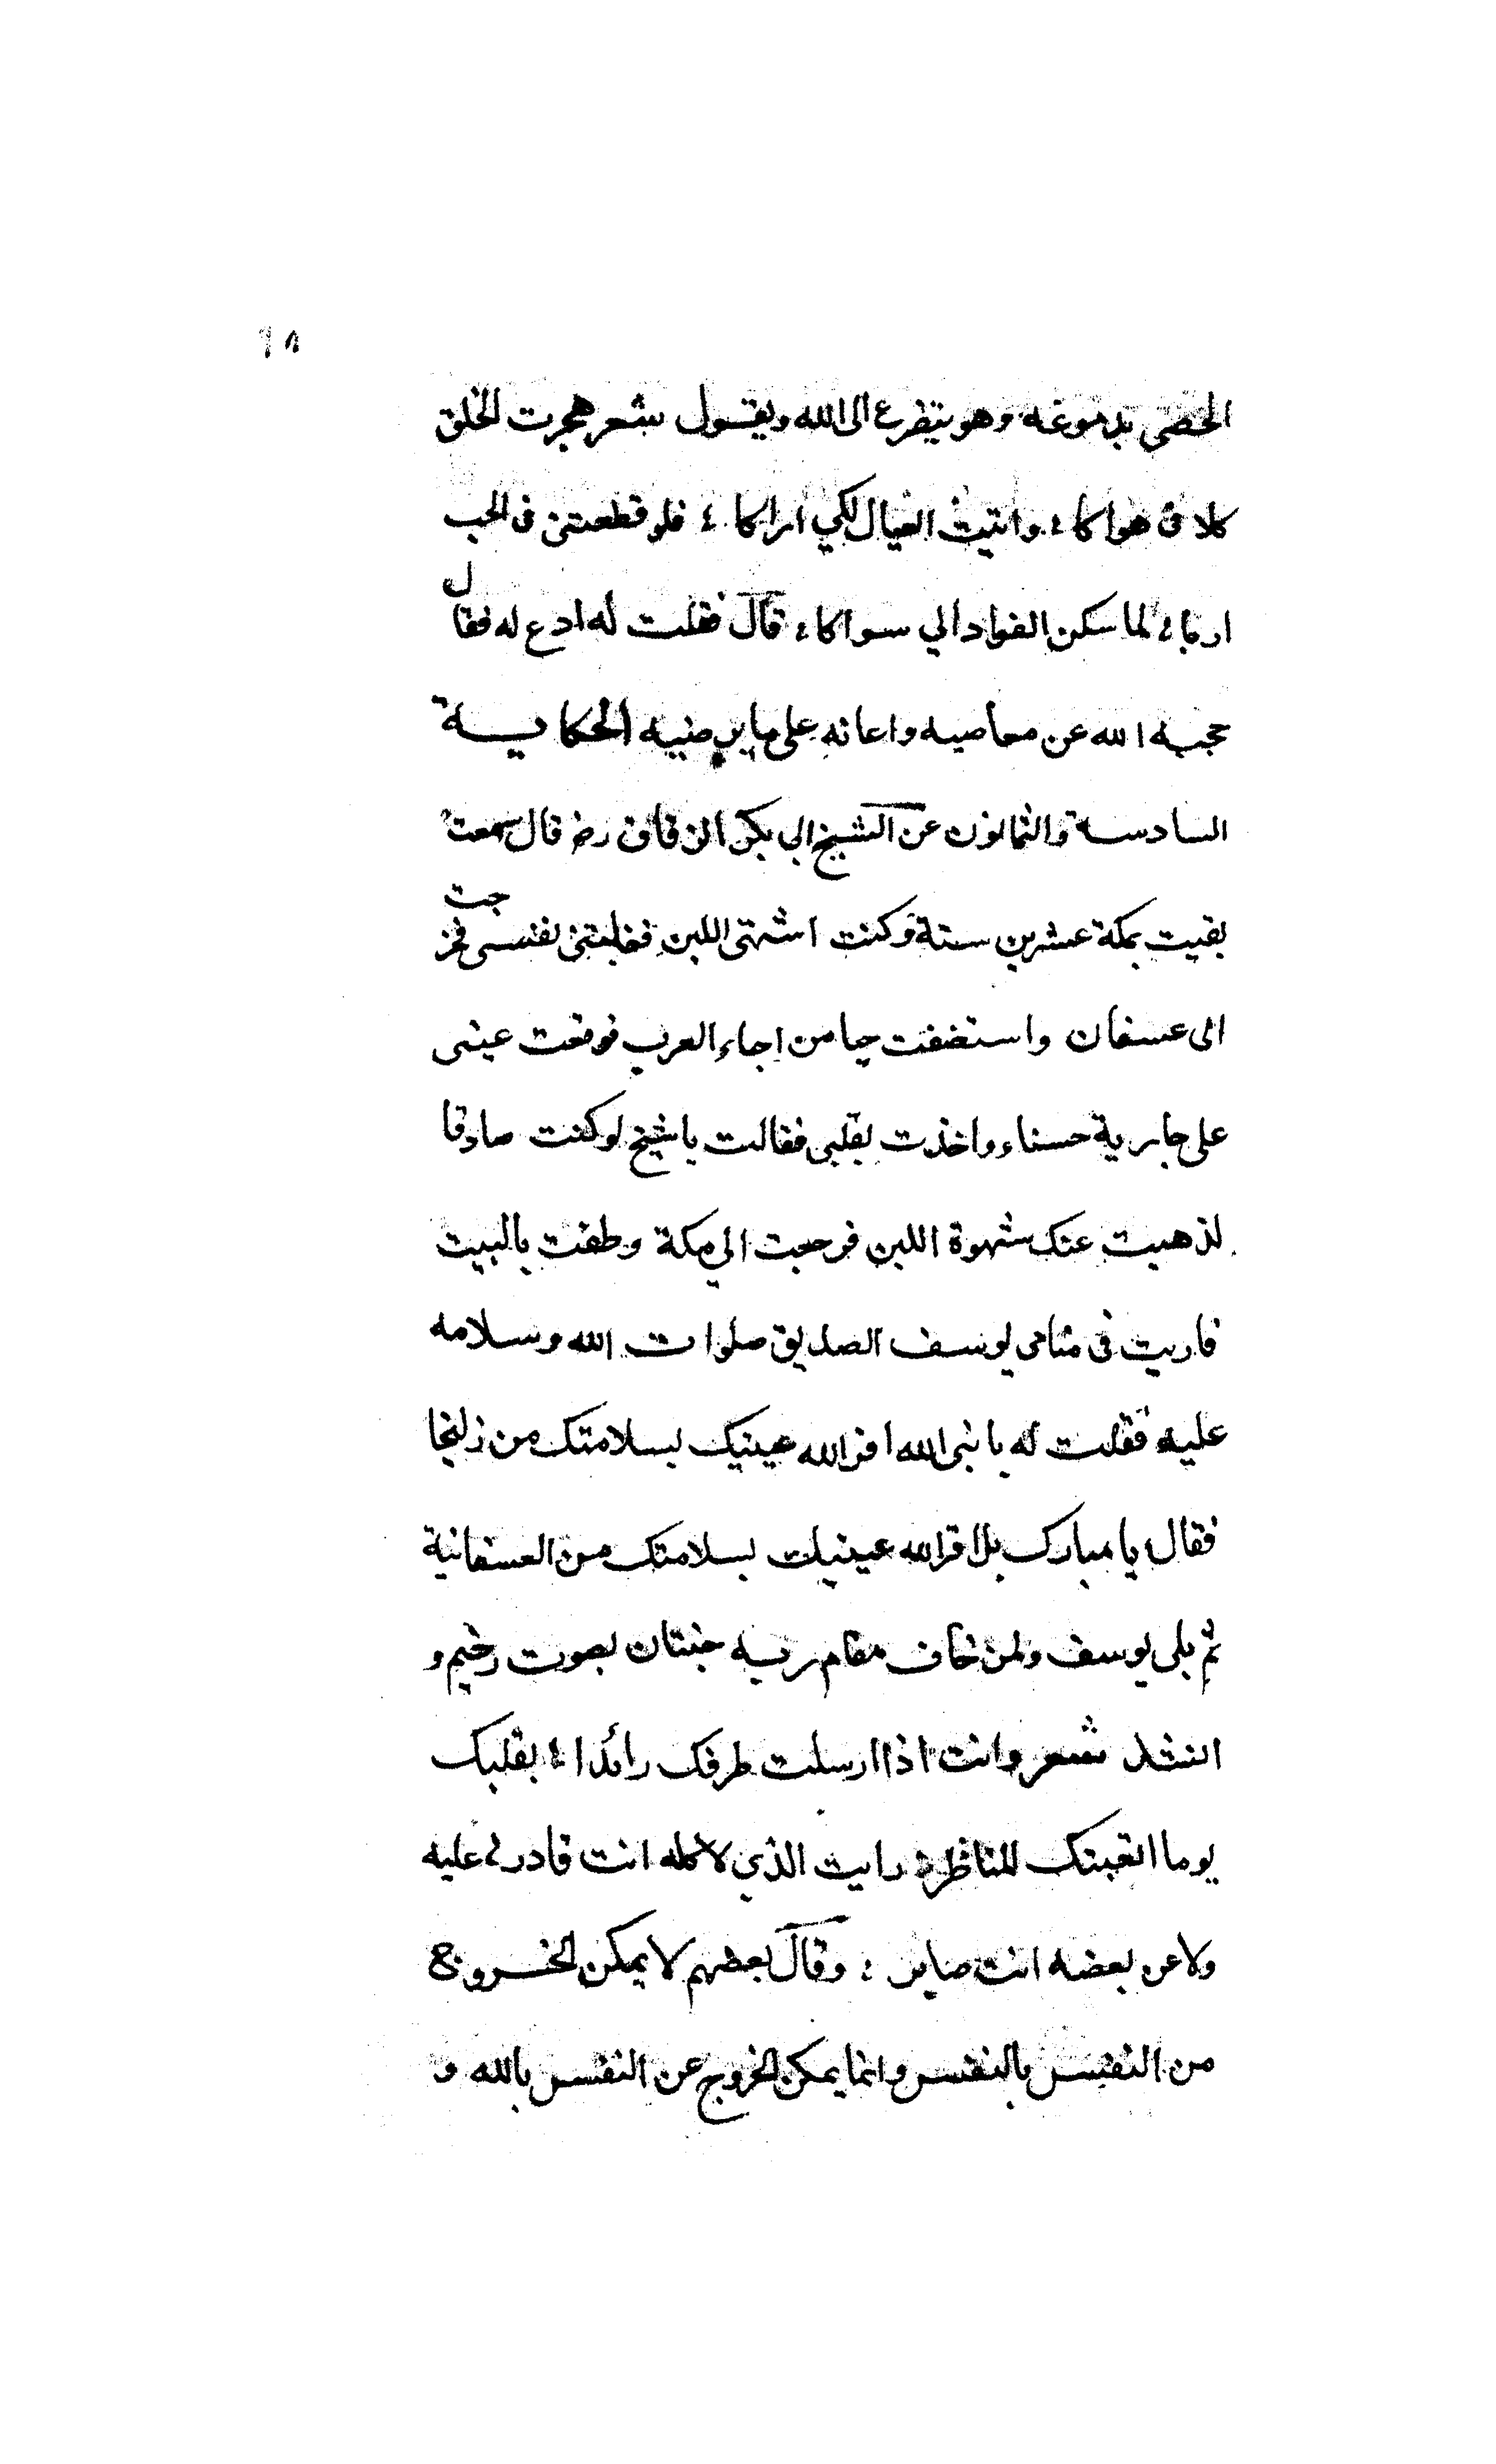 ٦٨
الحصى بدموعه وهو يتضرع الى الله ويقول شعر هجرت الخلق
كلا في هواكا ؛ وايتمت العيال لكي اراكا ؛ فلو قطعتني في الحب
اربا ؛ لما سكن الفواد الي سواكا ؛ قال فقلت له ادع له فقال
حجبه الله عن معاصيه واعانه على ما يرضيه الحكاية
السادسة والثمانون عن الشيخ ابي بكر الزقاق رضـ قال سمعت
بقيت بمكة عشرين سنة وكنت اشتهى اللبن فغلبتني نفسى فخرجت
الى عسفان واستضفت حيا من احياء العرب فوقعت عينى
على جارية حسناء واخذت بقلبى فقالت يا شيخ لو كنت صادقا
لذهبت عنك شهوة اللبن فرجعت الي مكة وطفت بالبيت
فاريت فى منامى يوسف الصديق صلوات الله وسلامه
عليه فقلت له يا نبى الله اقر الله عينيك بسلامتك من زليخا
فقال يا مبارك بل اقر الله عينيك بسلامتك من العسفانية
ثم تلى يوسف ولمن خاف مقام ربه جنتان بصوت رخيم و
انشد شعر وانت اذا ارسلت طرفك رائدا ؛ بقلبك
يوما اتعبتك المناظر ؛ رايت الذي لا كله انت قادر ؛ عليه
ولا عن بعضه انت صابر ؛ وقال بعضهم لا يمكن الخروج
من النفس بالنفس وانما يمكن الخروج عن النفس بالله و